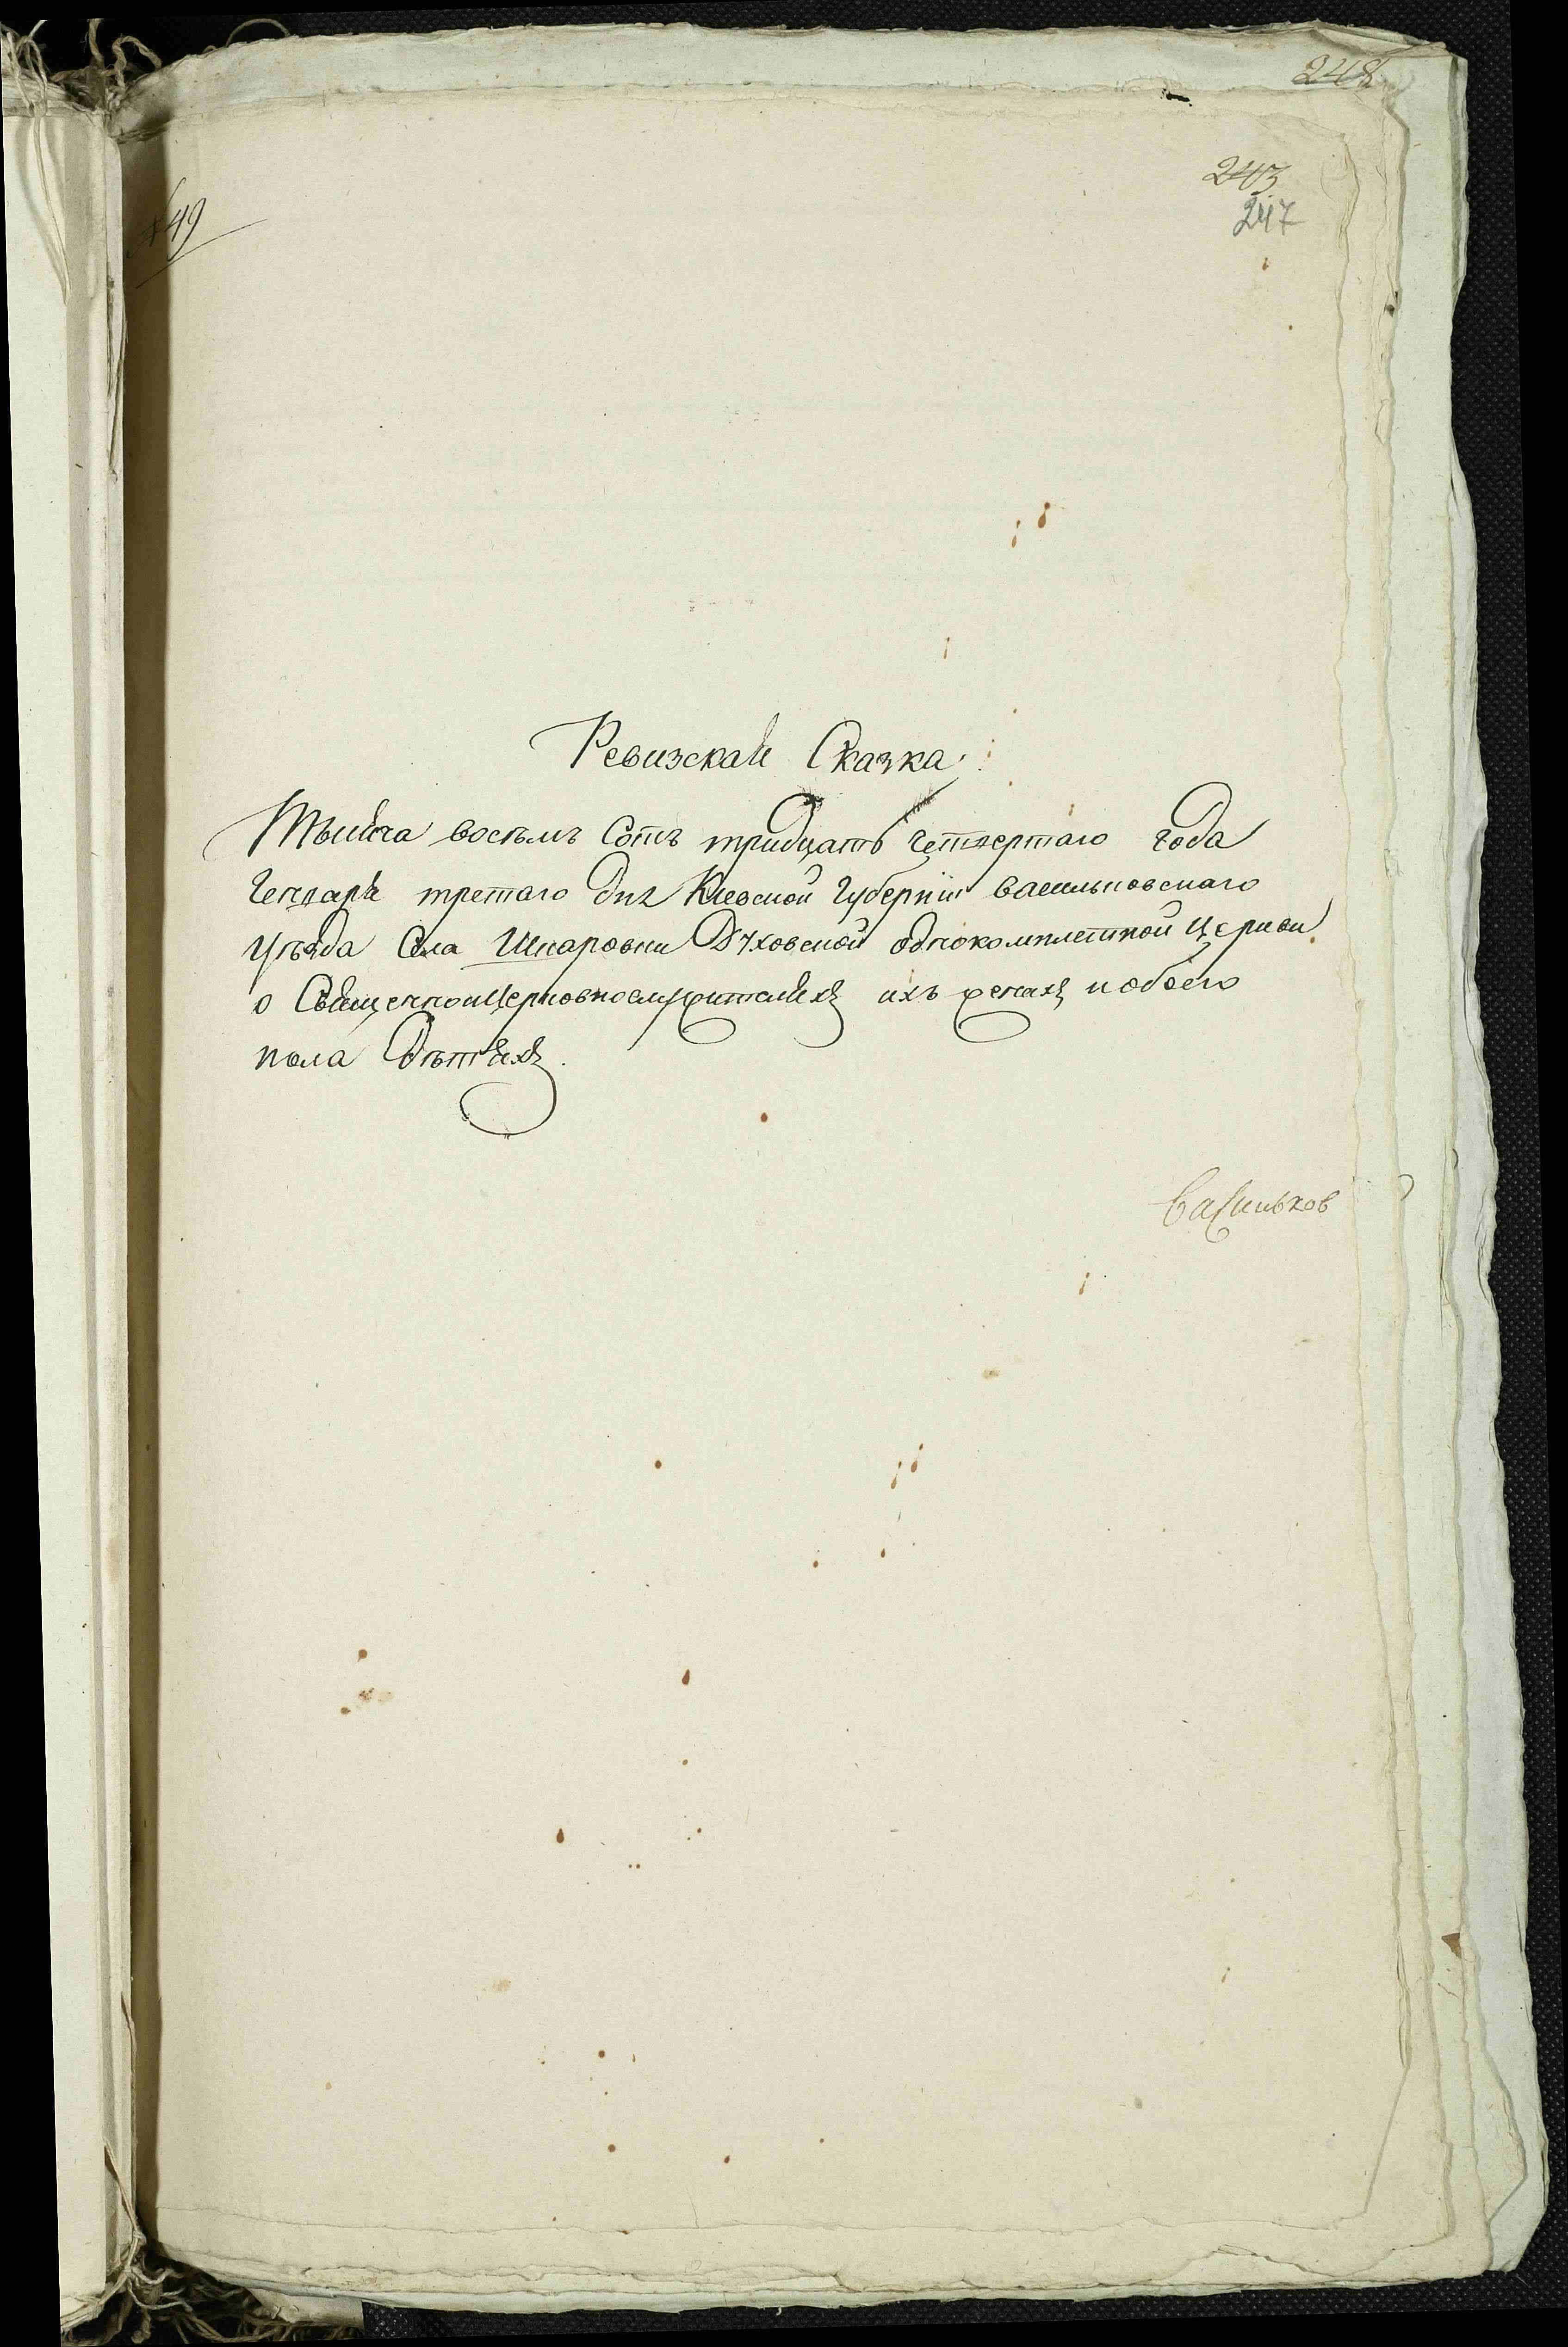 248
243
247
№ 49
Ревизская Сказка.
Тысяча восемъ Сотъ тридцать четвертаго года
Генваря третаго дня Киевской Губерніи Васильковскаго
уѣзда Села Шкаровки Духовской однокомплетной Церкви
о Священноицерковнослужителяхъ ихъ женахъ и обоего
пола Дѣтяхъ.
Васильков